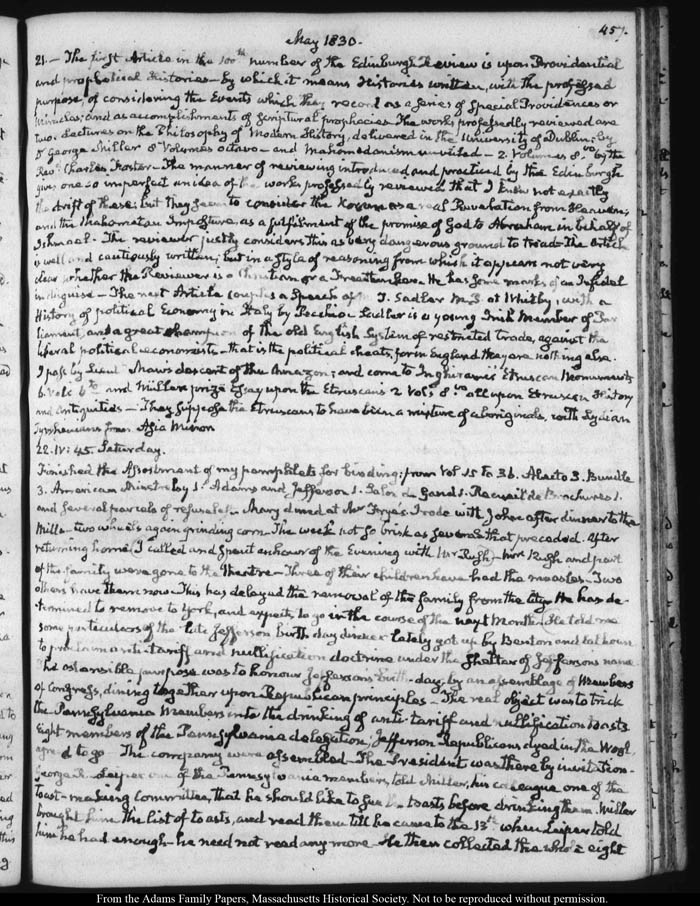 457.
May 1830.
21. — The first Article in the 100th number of the Edinburgh Review is upon Providential
and prophetical Histories — by which it means Histories written, with the professed
purpose, of considering the Events which they record as a series of special Providences or
Miracles; and as accomplishments of scriptural prophecies. The works professedly reviewed are
two. Lectures on the Philosophy of Modern History, delivered in the University of Dublin; by
George Miller 8 Volumes octavo — and Mahometanism unveiled — 2. Volumes 8.vo by the
Revd. Charles Forster — The manner of reviewing introduced and practiced by the Edinburgh
gives one so imperfect an idea of the works professedly reviewed that I know not exactly
the drift of these; but they seem to consider the Koran as a real Revelation from Heaven;
and the Mahometan Imposture, as a fulfilment of the promise of God to Abraham in behalf of
Ishmael. The reviewer justly considers this as very dangerous ground to tread. The Article
is well and cautiously written; but in a style of reasoning from which it appears not very
clear whether the Reviewer is a Christian or a Freethinker. He has some marks of an Infidel
in disguise — The next Article couples a Speech of M. T. Sadler M.P. at Whitby, with a
History of political Economy in Italy by Pecchio. Sadler is a young Irish Member of Par
liament, and a great champion of the old English System of restricted trade, against the
liberal political economists — that is the political cheats, for in England they are nothing else.
I pass by Lieut. Maws descent of the Amazon; and come to Inghirami's Etruscan Monuments
6. Vols 4to and Müllers prize Essay upon the Etruscans 2 Vols. 8.vo all upon Etruscan History
and Antiquities — They suppose the Etruscans to have been a mixture of aboriginals, with Lydian
Tyrrhenians from Asia Minor
22. IV: 45. Saturday.
Finished the Assortment of my pamphlets for binding; from Vol 15 to 36. Abaeto 3. Bundle
3. American Ministre by 1. Adams and Jefferson 1. Recueil de Brochures 1.
and several parcels of refuse. Mary dined at Mrs Frye's. I rode with John after dinner to the
Mills — two wheels again grinding corn. The week not so brisk as several that preceded. After
returning home, I called and spent an hour of the Evening with Mr Rush — Mrs Rush and part
of the family were gone to the theatre — Three of their children have had the measles. Two
others have them now. This has delayed the removal of the family from the City. He has de-
termined to remove to York, and expects to go in the course of the next Month. He told me
some particulars of the late Jefferson birth day dinner lately got up by Benton and Calhoun
to proclaim anti-tariff and nullification doctrine under the shelter of Jeffersons name
The ostensible purpose was to honour Jeffersons birth-day, by an assemblage of Members
of Congress, dining together upon Republican principles — The real object was to trick
the Pennsylvania Members into the drinking of anti-tariff and nullification toasts
Eight members of the Pennsylvania delegation; Jefferson Republicans dyed in the Wool,
agreed to go. The company were assembled. The President was there by invitation.
George G. Leiper one of the Pennsylvania members, told Miller, his colleague one of the
toast-making Committee, that he should like to see the toasts before drinking them. Miller
brought him the list of toasts, and read them till he came to the 13th when Leiper told
him he had enough — he need not read any more. He then collected the whole eight
From the Adams Family Papers, Massachusetts Historical Society. Not to be reproduced without permission.